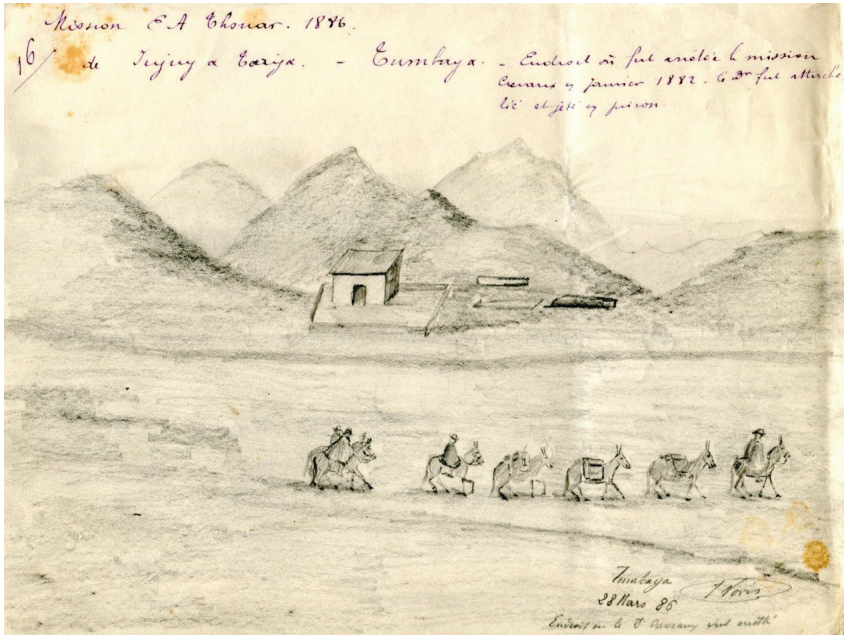 Mission E A Thouar. 1886.
16/ de Jujuy a Tarija. - Tumbaya. - Endroit où fut arrêtée la mission
Crevaux en janvier 1882. le Dr fut
lié et jeté en prison.
Tumbaya
28 Mars 86
Endroit où le Dr Crevaux fut arrêté